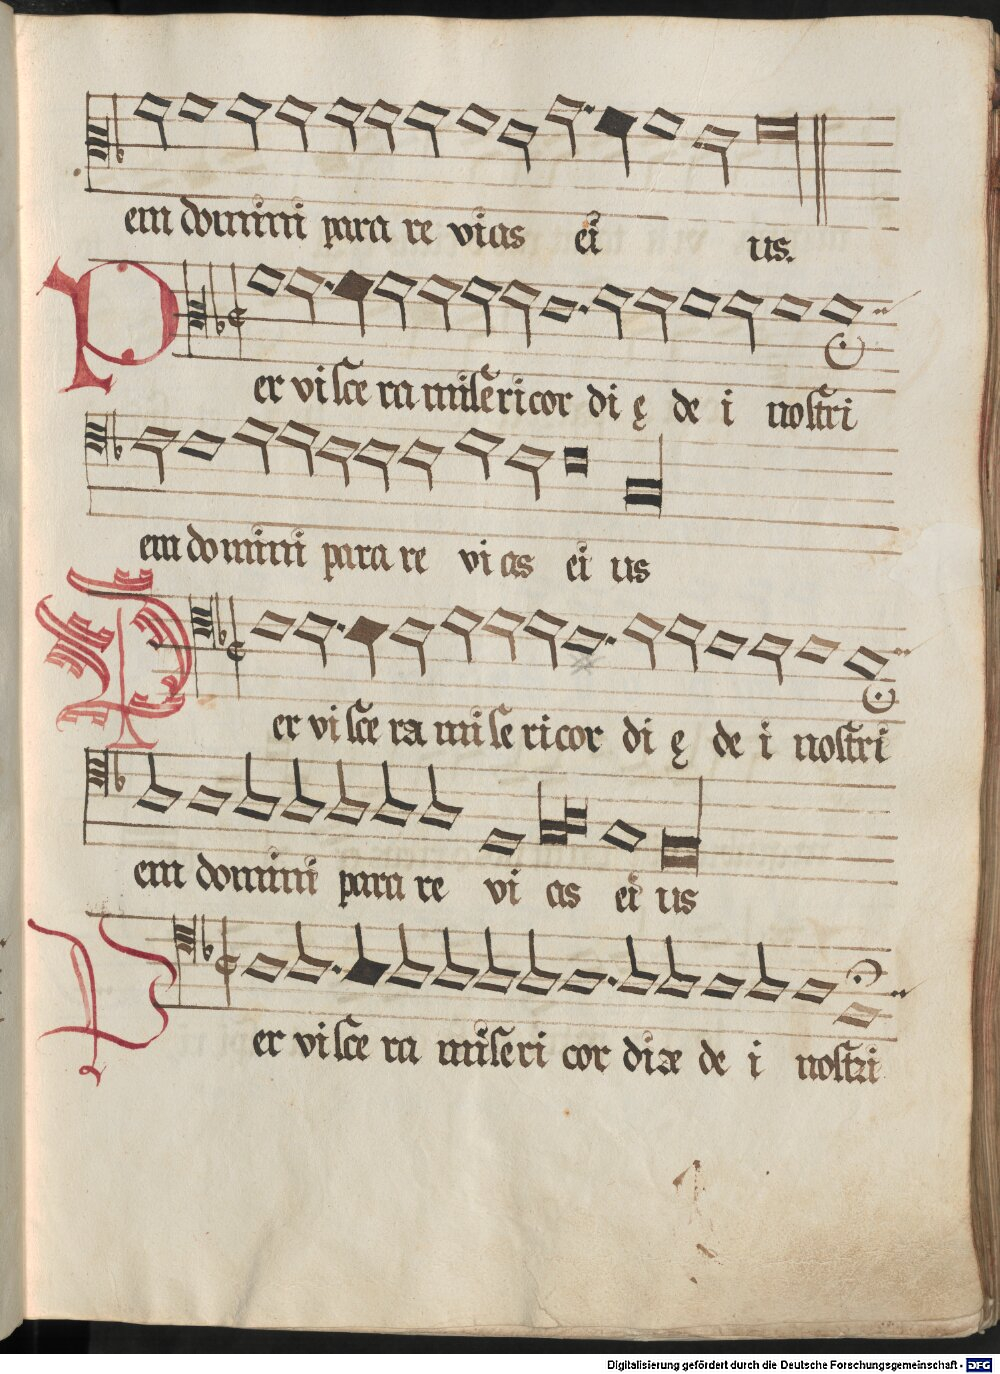 em domini para re vias ei us.
Per visce ra misericor di ę de i nostri
em domini para re vi as ei us
Per visce ra mi se ricor di ę de i nostri
em domini para re vi as ei us
Per visce ra miseri cor diæ de i nostri
Digitalisierung gefördert durch die Deutsche Forschungsgemeinschaft - DFG